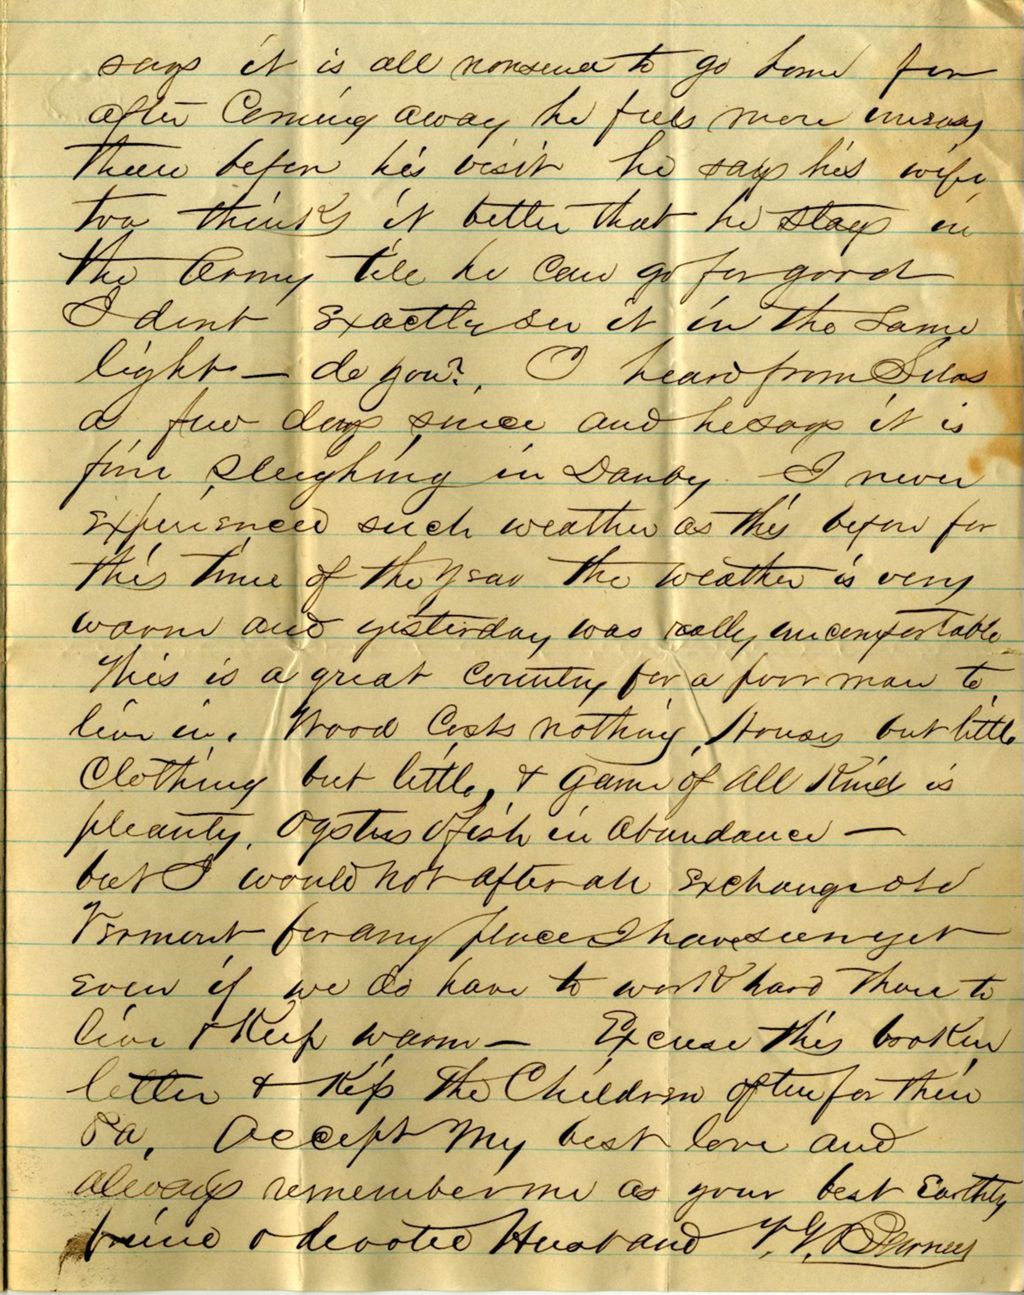 says it is all nonsense to go home for
after Coming away he feels more uneasy
then before his visit he says his wife
too thinks it better that he stays in
the Army till he can go for good
I dont Exactly see it in the same
light — do you? I heard from Silas
a few days since and he says it is
fine Sleighing in Danby. I never
Experienced such weather as this before for
this time of the year the weather is very
warm and yesterday was really uncomfortable
This is a great Country for a poor man to
live in. Wood Costs nothing, Houses but little
Clothing but little, & Game of all Kind is
pleanty, Oysters & fish in abundance —
but I would not after all Exchange old
Vermont for any place I have seen yet
Even if we do have to work hard there to
live & Keep warm — Excuse this broken
letter & Kiss the Children often for their
Pa. Accept My best love and
always remember me as your best Earthly
friend & devoted Husband